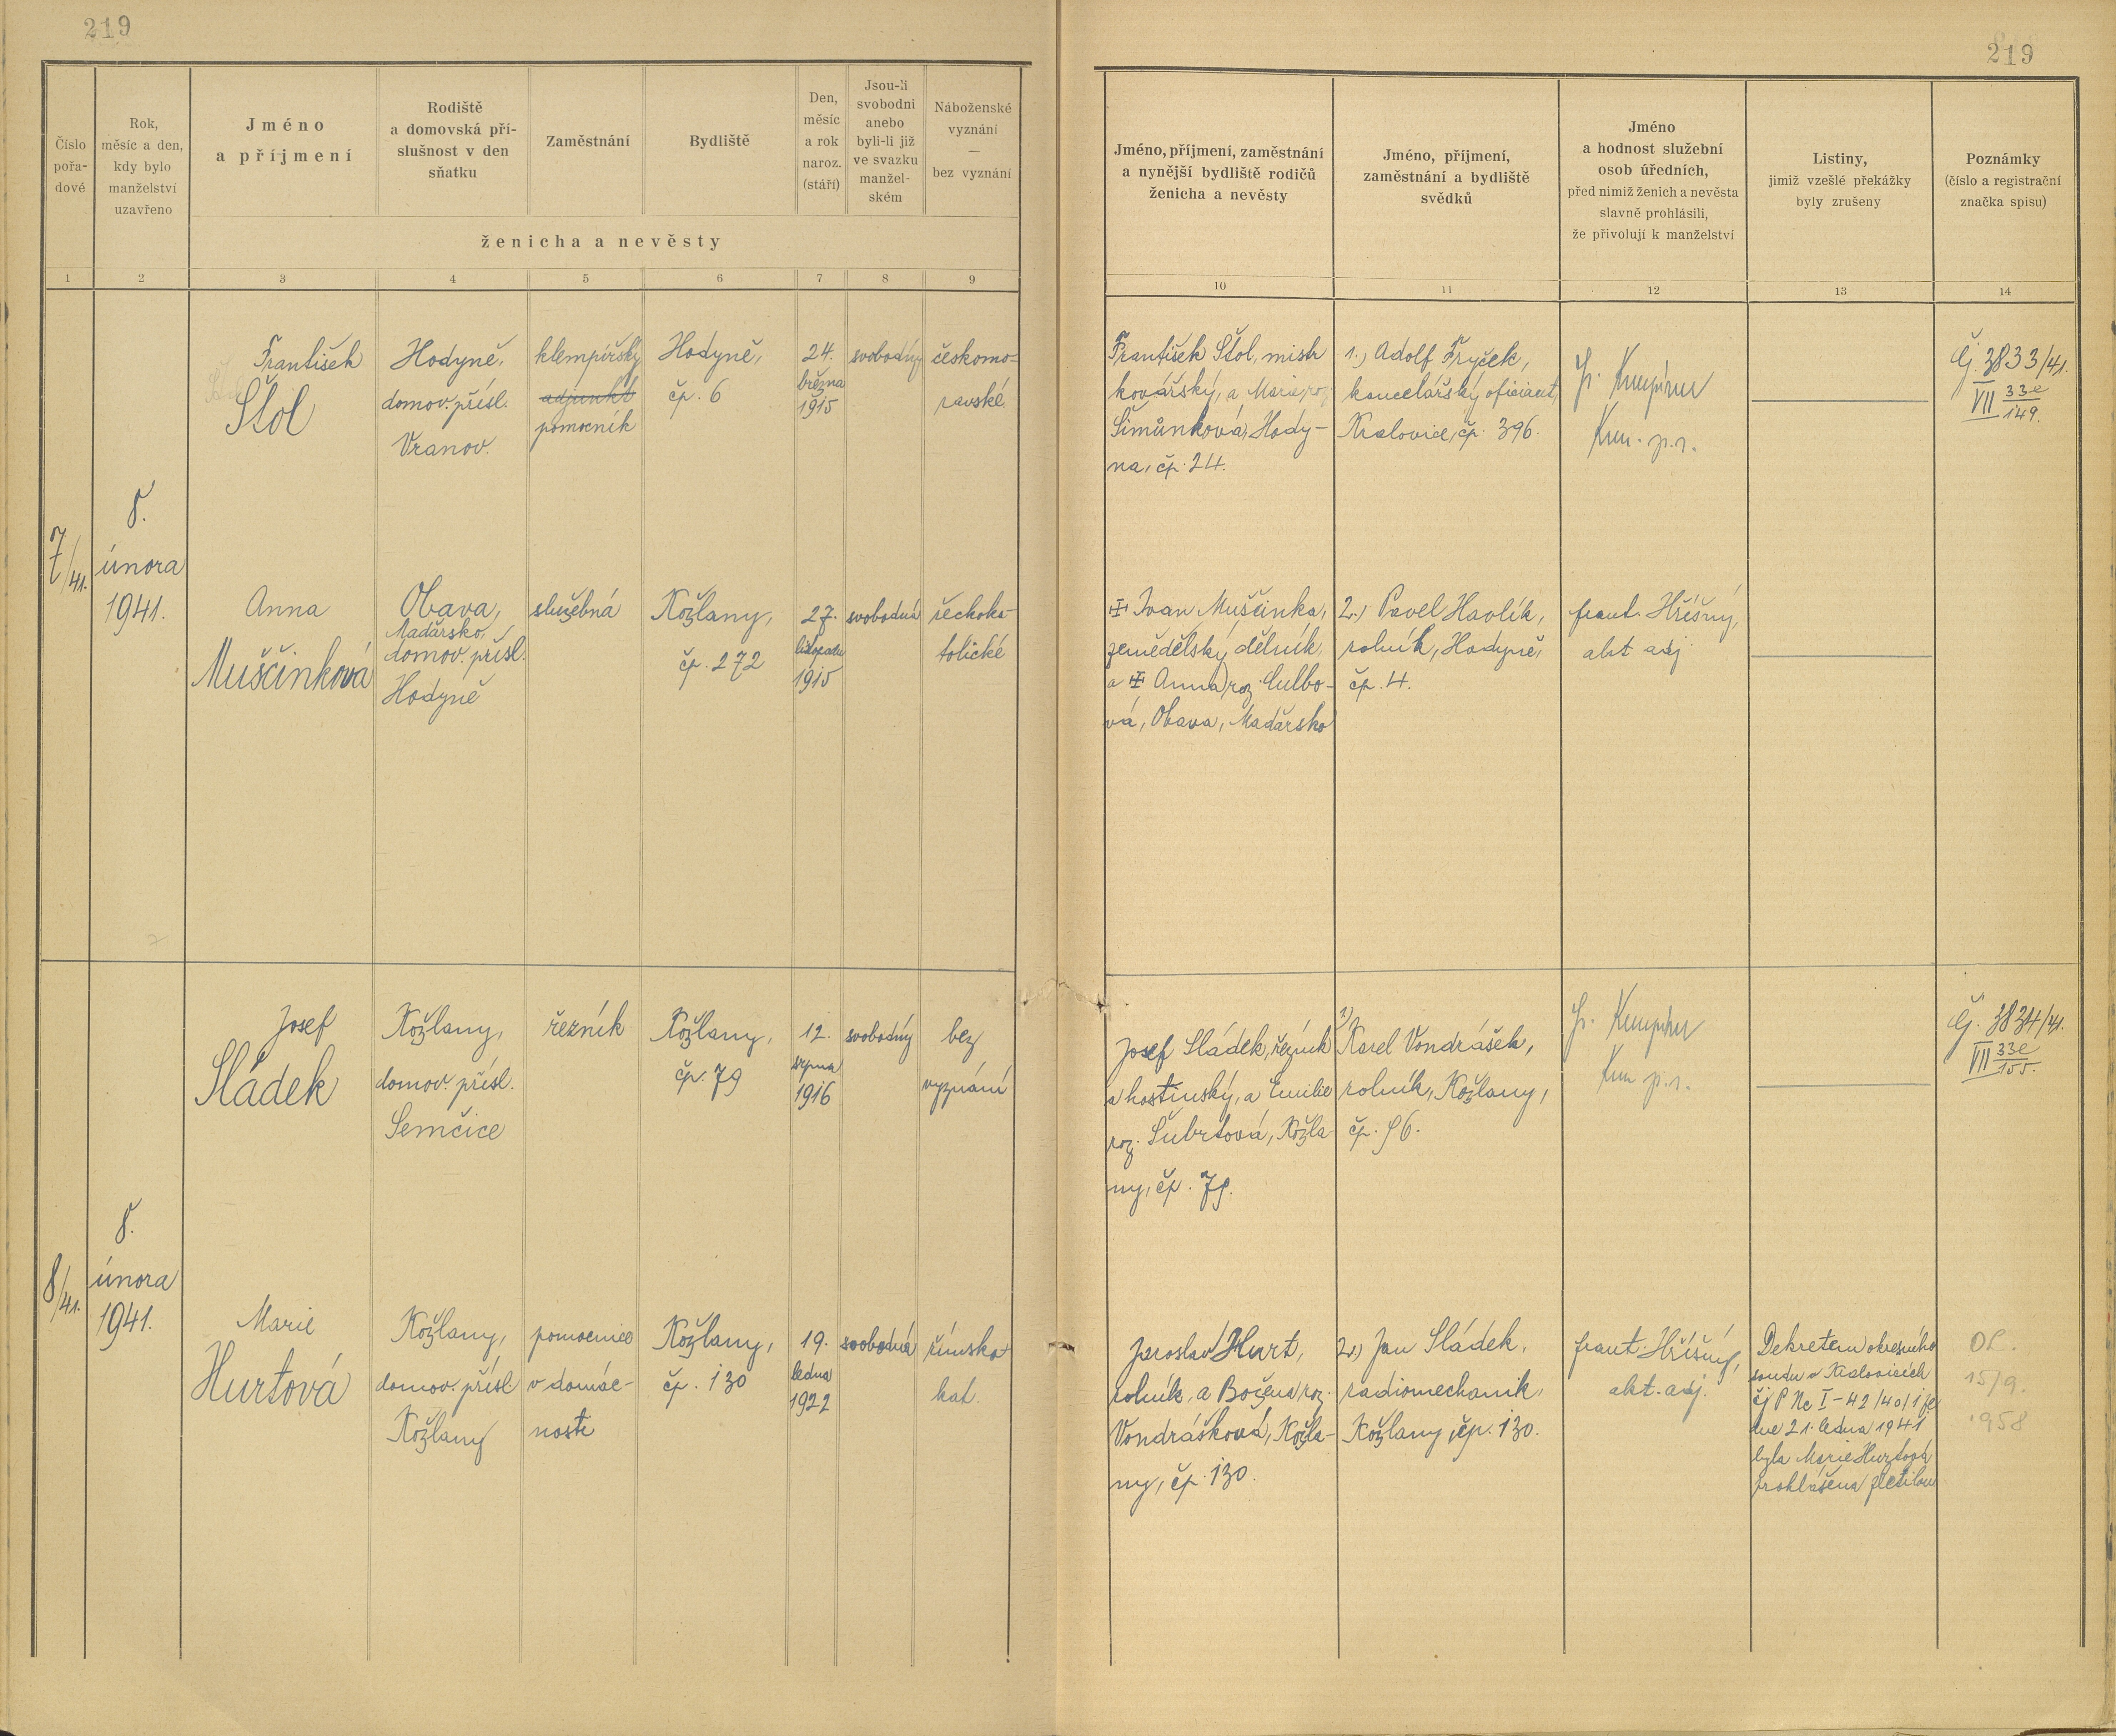 219
219
Číslo pořa-dové
Rok, měsíc a den, kdy bylo manželství uzavřeno
Jméno a příjmení
Rodiště a domovská pří-slušnost v den sňatku
Zaměstnání
Bydliště
Den, měsíc a rok naroz. (stáří)
Jsou-li svobodni anebo byli-li již ve svazku manžel-ském
Náboženské vyznání — bez vyznání
ženicha a nevěsty
Jméno, příjmení, zaměstnání a nynější bydliště rodičů ženicha a nevěsty
Jméno, příjmení, zaměstnání a bydliště svědků
Jméno a hodnost služební osob úředních, před nimiž ženich a nevěsta slavně prohlásili, že přivolují k manželství
Listiny, jimiž vzešlé překážky byly zrušeny
Poznámky (číslo a registrační značka spisu)
1 2 3 4 5 6 7 8 9 10 11 12 13 14
7/41.
8.
února
1941.
František
Štol
Hodyně,
domov. přísl.
Vranov.
klempířský
adjunkt
pomocník
Hodyně,
čp. 6
24.
března
1915
svobodný
českomo-
ravské
František Štol, mistr
kovářský, a Marie, roz.
Šimůnková, Hody-
na, čp. 24.
1.) Adolf Fryček,
kancelářský oficiant,
Kralovice, čp. 396.
Čj. 3833/41.
VII 33e
149.
Anna
Muščinková
Obava,
Maďarsko,
domov. přísl.
Hodyně
služebná
Kožlany,
čp. 272
27.
listopadu
1915
svobodná
řeckoka-
tolické
Ivan Muščinka,
zemědělský dělník,
a Anna, roz. Culbo-
vá, Obava, Maďarsko
2.) Pavel Havlík,
rolník, Hodyně,
čp. 4.
frant. Hříšný,
akt adj
8/41.
8.
února
1941.
Josef
Sládek
Kožlany,
domov. přísl.
Semčice
řezník
Kožlany,
čp. 79
12.
srpna
1916
svobodný
bez
vyznání
Josef Sládek, řezník
a hostinský, a Emilie
roz. Šubrtová, Kožla-
ny, čp. 79.
1)
Karel Vondrášek,
rolník, Kožlany,
čp. 96.
Čj. 3834/41.
VII 33e
155.
Marie
Hurtová
Kožlany,
domov. přísl
Kožlany
pomocnice
v domác-
nosti
Kožlany,
čp. 130
19.
ledna
1922
svobodná
římsko
kat.
Jaroslav Hurt,
rolník, a Božena, roz.
Vondrášková, Kožla-
ny, čp. 130.
2.) Jan Sládek,
radiomechanik,
Kožlany, čp. 130.
frant. Hříšný,
akt. adj.
Dekretem okresního
soudu v Kralovicích
čj P Nc I-42/40/1 ze
dne 21. ledna 1941
byla Marie Hurtová
prohlášena zletilou
15/9.
1958